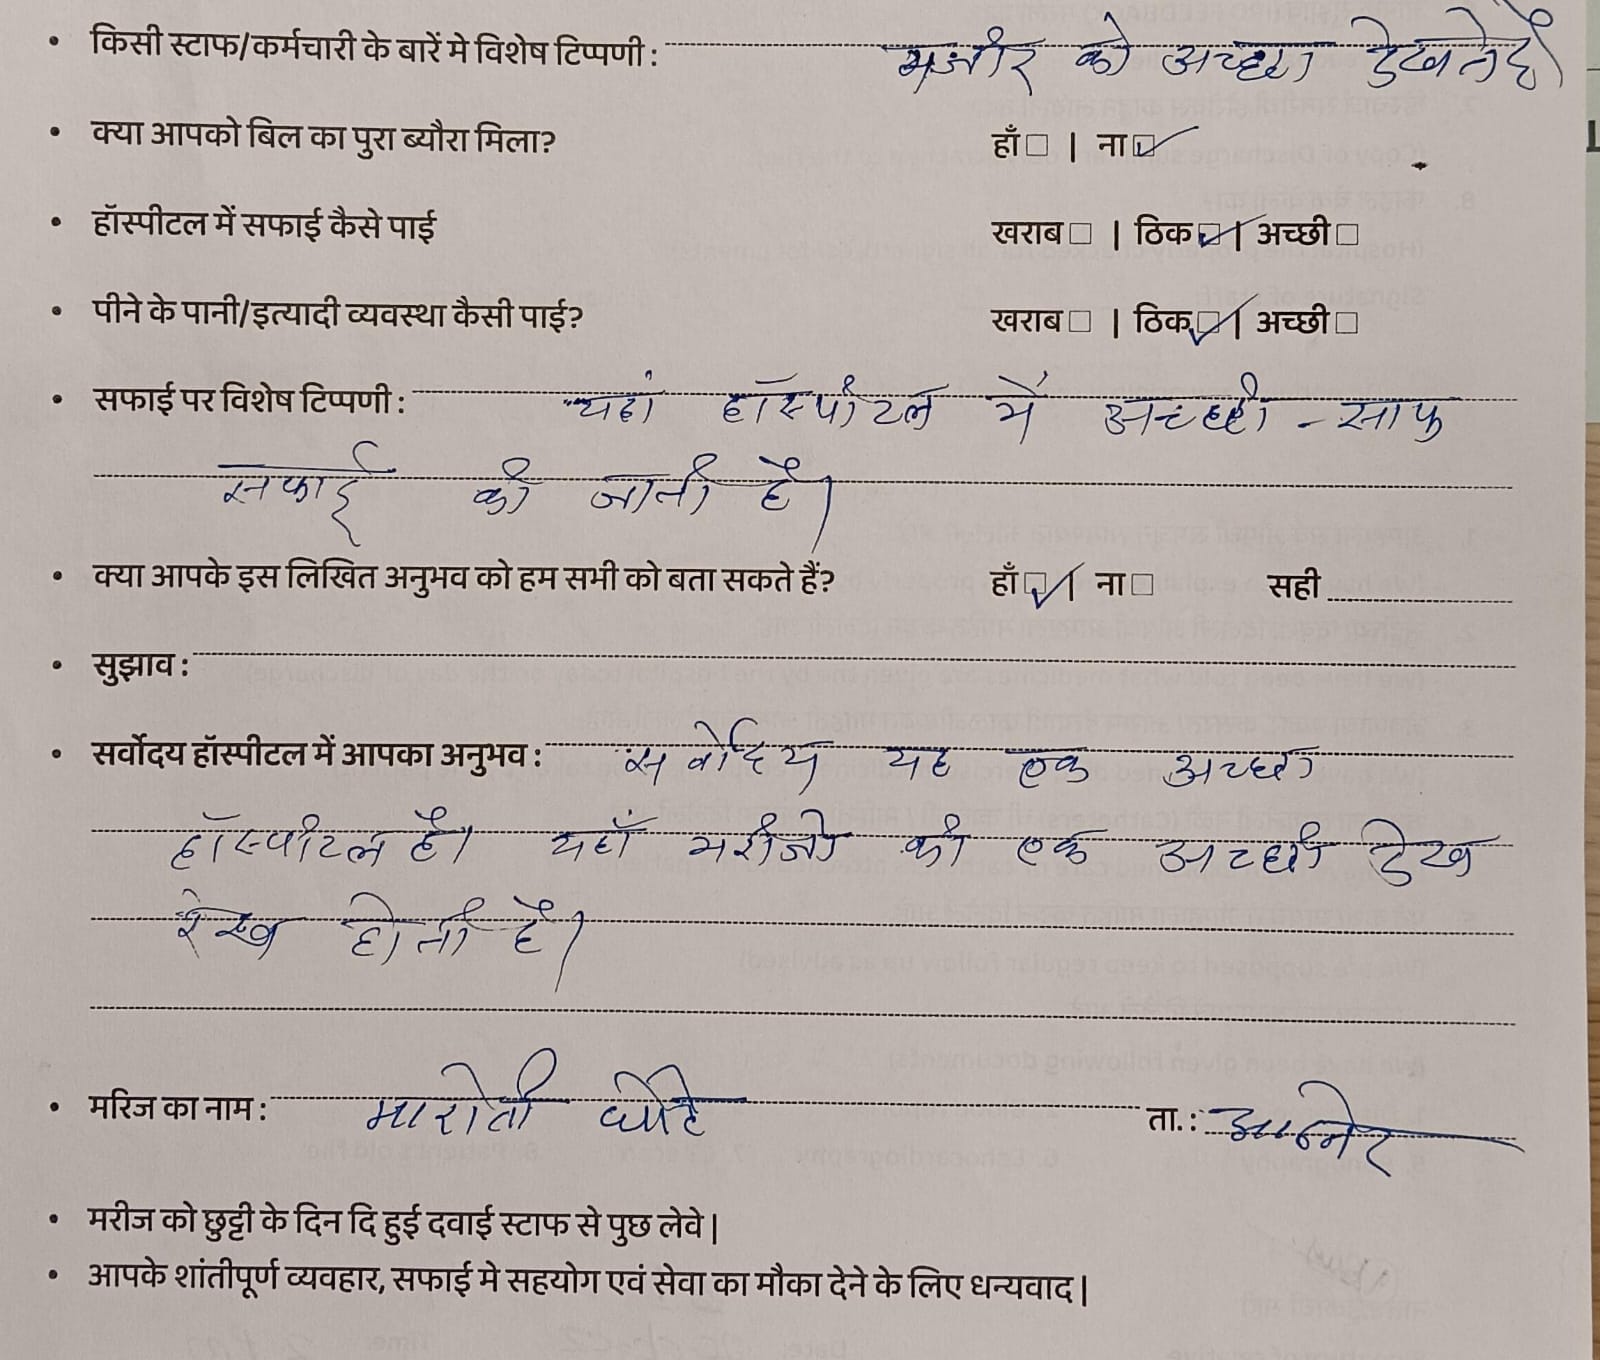 • किसी स्टाफ/कर्मचारी के बारें मे विशेष टिप्पणी : को अच्छा देखते है।
• क्या आपको बिल का पुरा ब्यौरा मिला? हाँ □ | ना ☑
• हॉस्पीटल में सफाई कैसे पाई खराब □ | ठिक ☑ | अच्छी □
• पीने के पानी/इत्यादी व्यवस्था कैसी पाई? खराब □ | ठिक ☑ | अच्छी □
• सफाई पर विशेष टिप्पणी : यहां हॉस्पीटल में अच्छी - साफ
सफाई की जाती है।
• क्या आपके इस लिखित अनुभव को हम सभी को बता सकते हैं? हाँ ☑ | ना □ सही
• सुझाव :
• सर्वोदय हॉस्पीटल में आपका अनुभव : सर्वोदय यह एक अच्छा
हॉस्पीटल है। यहाँ मरीजो की एक अच्छी देख
रेख होती है।
• मरिज का नाम : मारोती ता. :
• मरीज को छुट्टी के दिन दि हुई दवाई स्टाफ से पुछ लेवे|
• आपके शांतीपूर्ण व्यवहार, सफाई मे सहयोग एवं सेवा का मौका देने के लिए धन्यवाद|